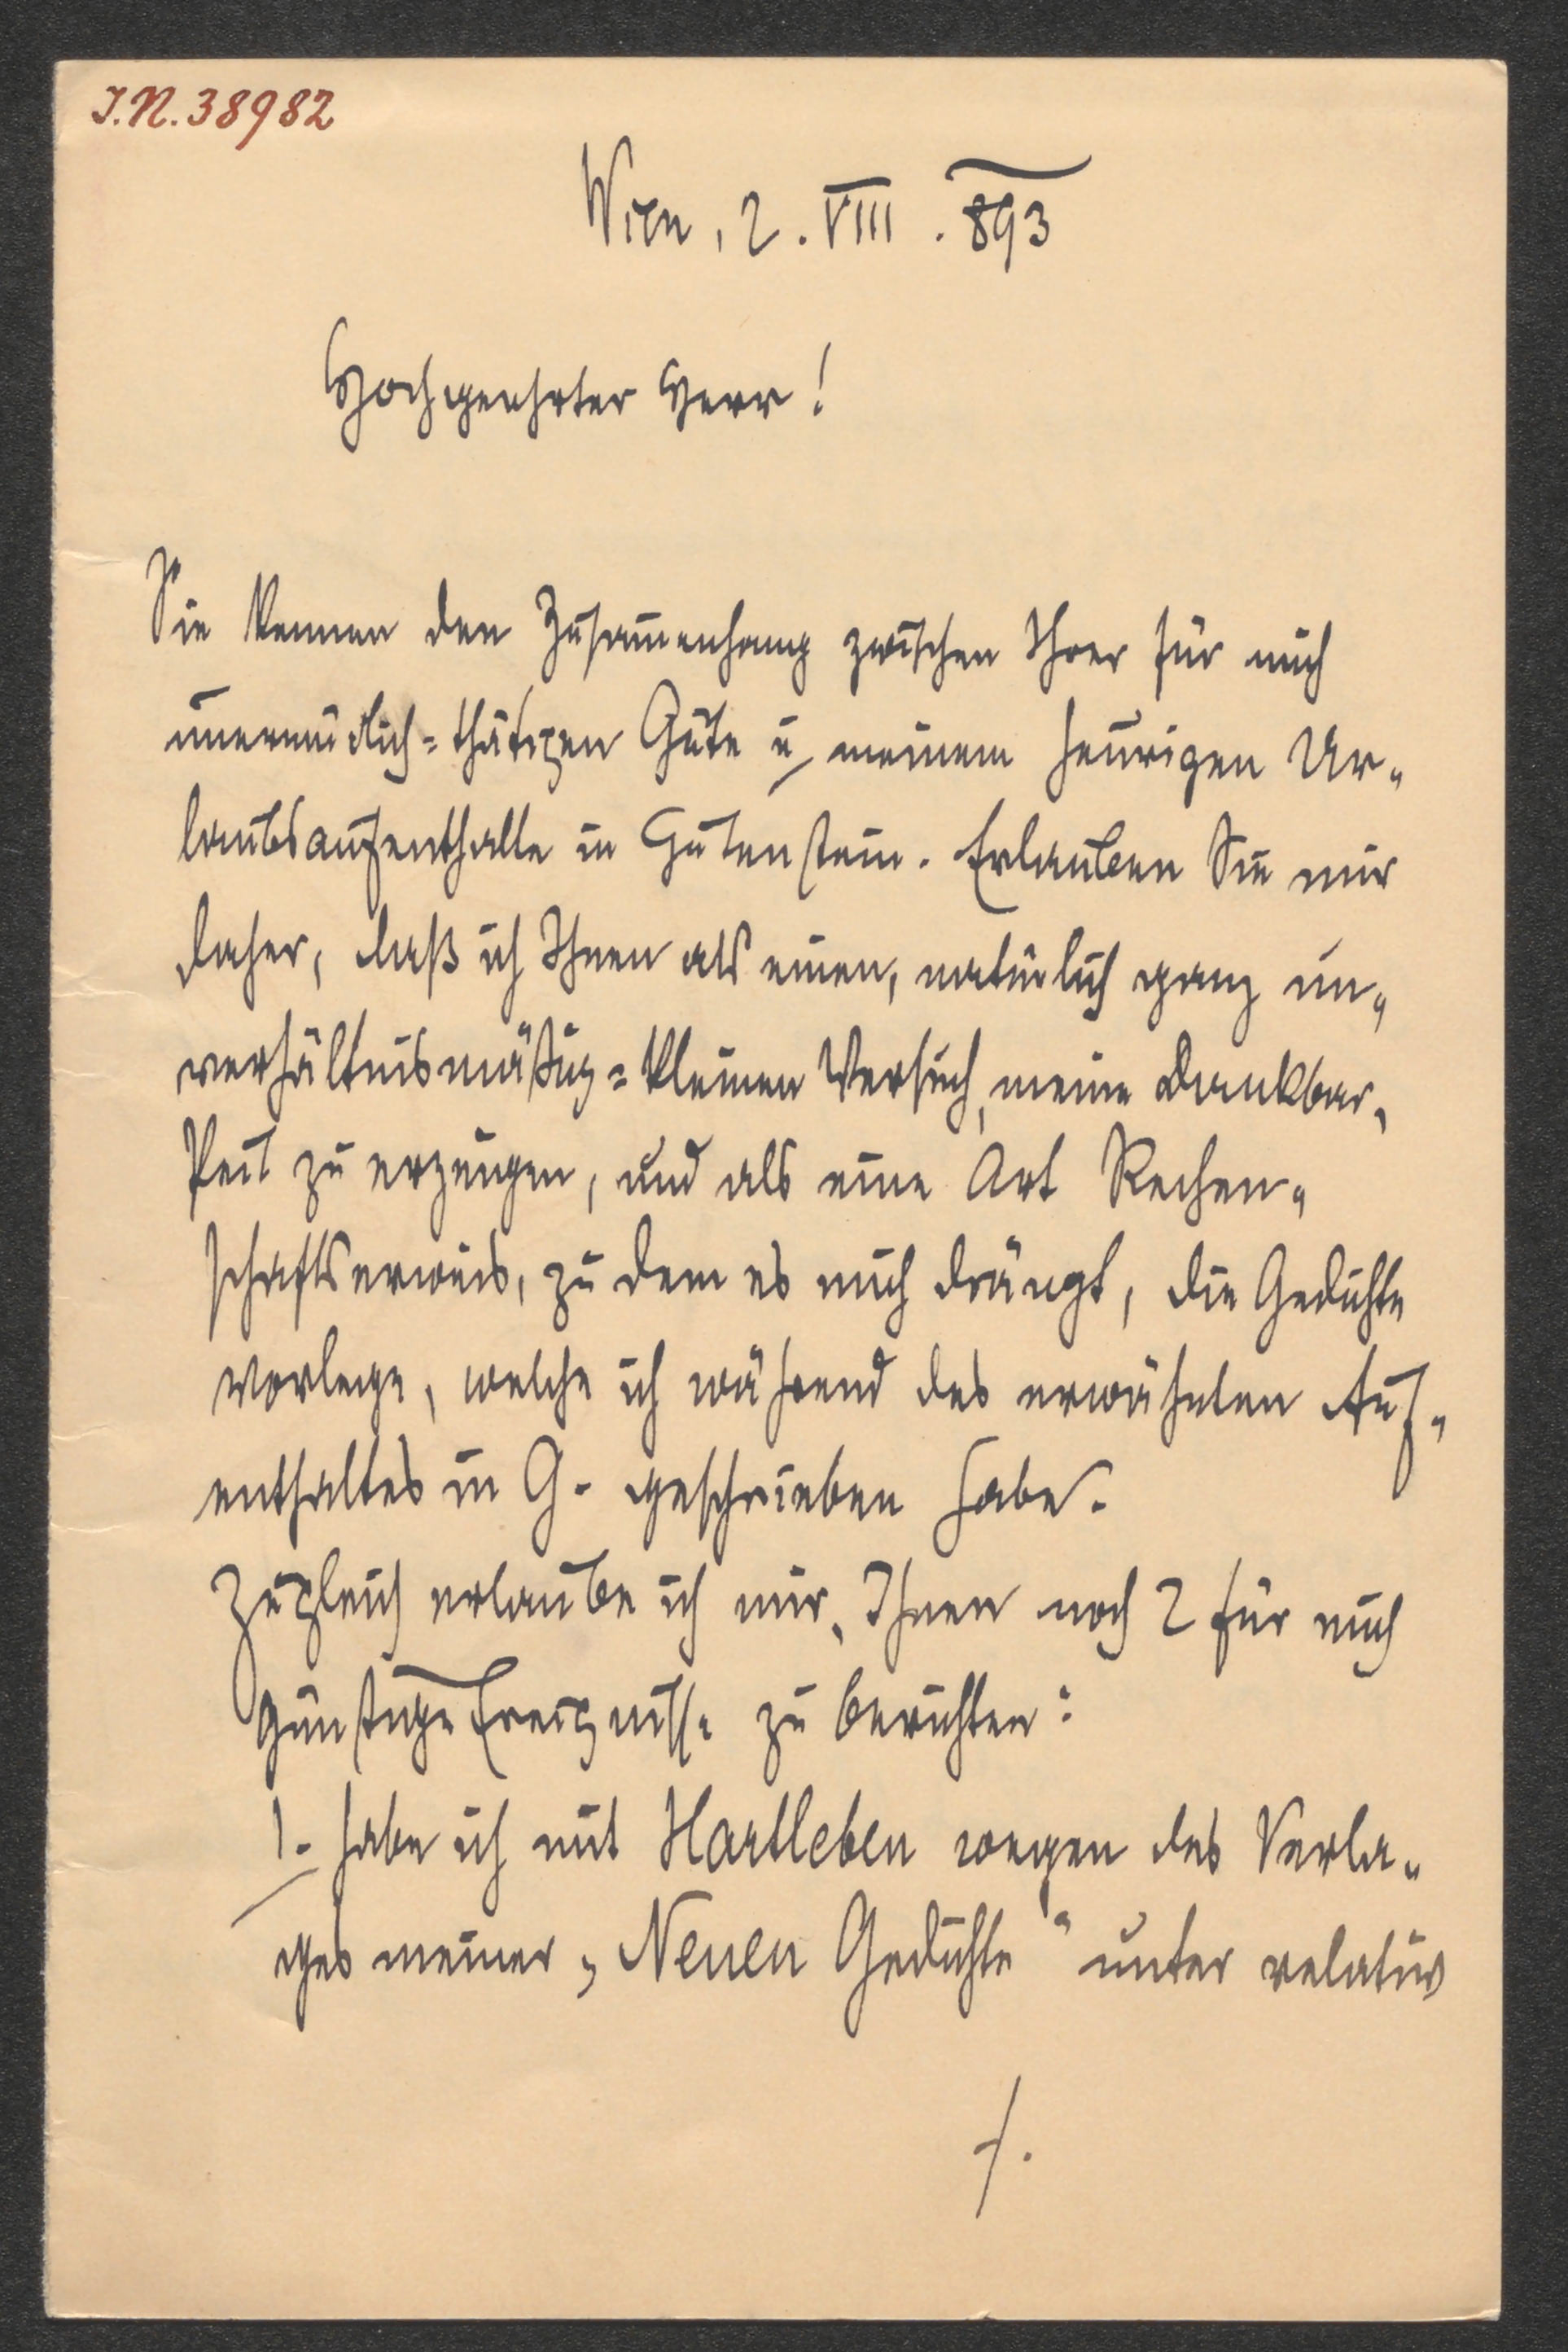 I.N. 38982
Wien, 2. VIII. 893
Hochgeehrter Herr!
Sie kennen den Zusam̅enhang zwischen Ihrer für mich
unermüdlich=thätigen Güte u. meinem heurigen Ur-
laubsaufenthalte in Gutenstein. Erlauben Sie mir
daher, daß ich Ihnen als einen, natürlich ganz un-
verhältnismäßig=kleinen Versuch, meine Dankbar-
keit zu erzeugen, und als eine Art Rechen-
schaftserweis, zu dem es mich drängt, die Gedichte
vorlege, welche ich während des erwähnten Auf-
enthaltes in G. geschrieben habe.
Zugleich erlaube ich mir, Ihnen noch 2 für mich
günstige Ereignisse zu berichten:
1. habe ich mit Hartleben wegen des Verla-
ges meiner „Neuen Gedichte“ unter relativ